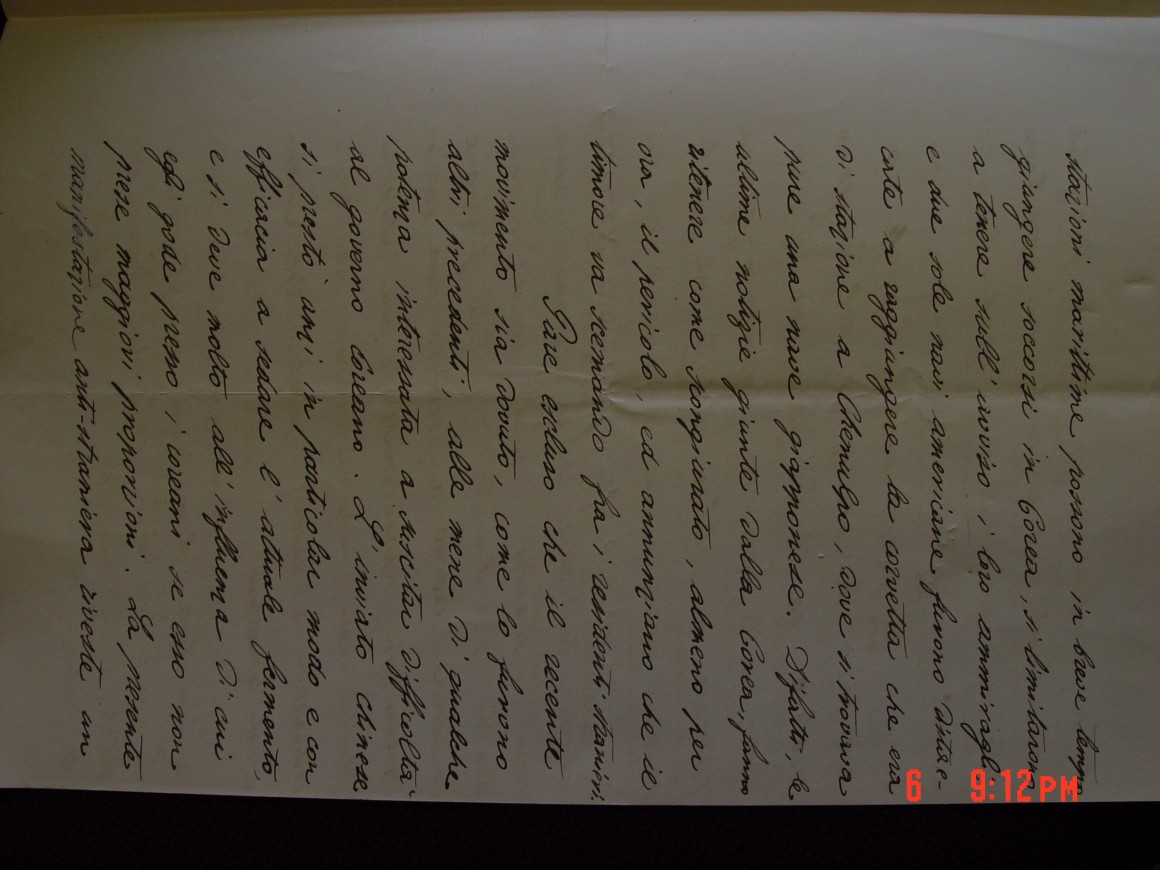 stazioni marittime possono in breve tempo
giungere soccorsi in Corea, si limitarono
a tenere sull'avviso i loro ammiragli
e due sole navi americane furono distac-
cate a raggiungere la corvetta che era
di stazione a Chemulpo, dove si trovava
pure una nave giapponese. Difatti, le
ultime notizie giunte dalla Corea, fanno
ritenere come scongiurato, almeno per
ora, il pericolo, ed annunziano che il
timore va scemando fra i residenti stranieri.
Pare escluso che il recente
movimento sia dovuto, come lo furono
altri precedenti, alle mene di qualche
potenza interessata a suscitar difficoltà
al governo Coreano. L'inviato chinese
si prestò anzi in particolar modo e con
efficacia a sedare l'attuale fermento,
e si deve molto all'influenza di cui
egli gode presso i coreani se esso non
prese maggiori proporzioni. La presente
manifestazione anti-straniera riveste un
6 9:12PM